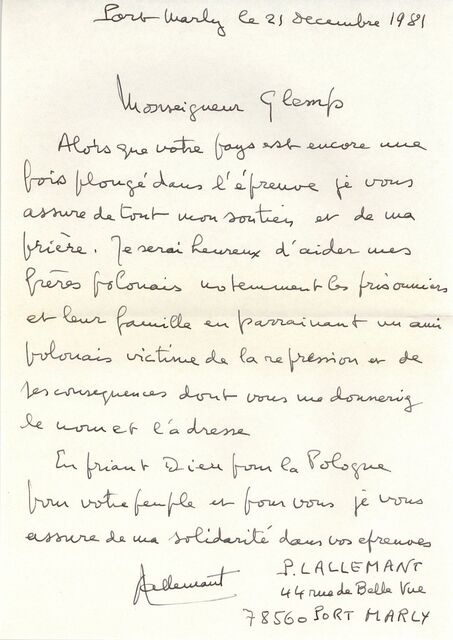 Port Marly le 21 decembre 1981
Monseigneur Glemp
Alors que votre pays est encore une
fois plongé dans l'épreuve je vous
assure de tout mon soutien et de ma
prière. Je serai heureux d'aider mes
frères polonais notemment les prisonniers
et leur famille en parrainant un ami
polonais victime de la repression et de
ses consequences dont vous me donneriez
le nom et l'adresse
En priant Dieu pour la Pologne
pour votre peuple et pour vous je vous
assure de ma solidarité dans vos epreuves
Lallemant
P. LALLEMANT
44 rue de Belle Vue
78560 PORT MARLY